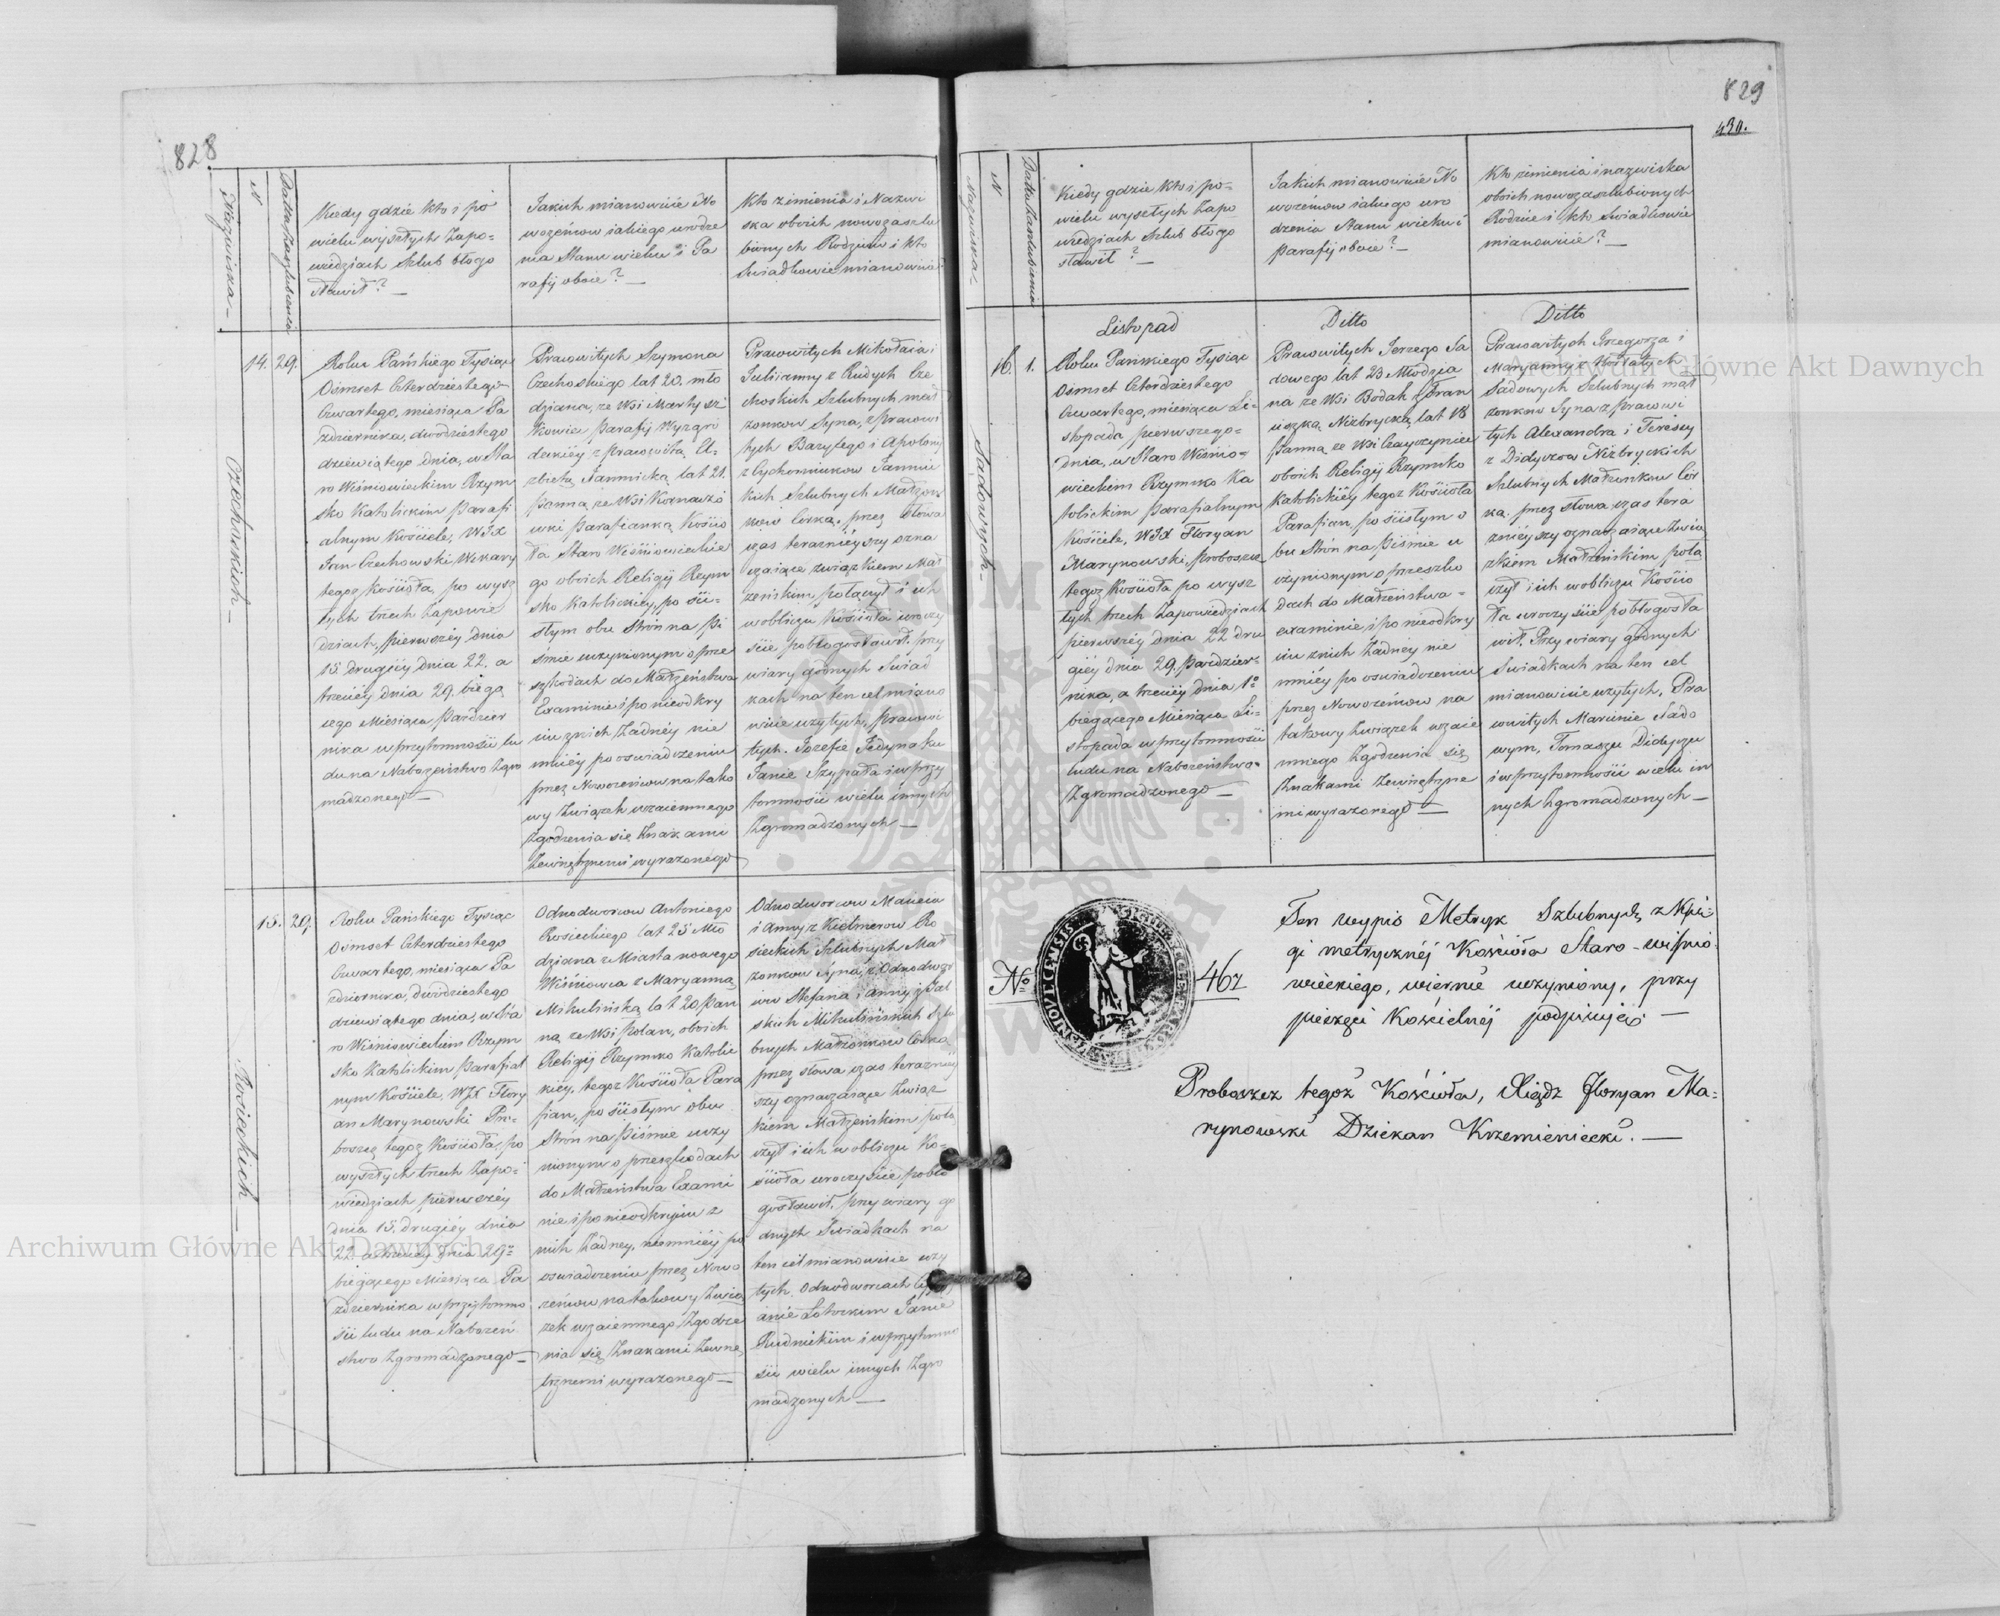 828
Nazwiska —
N
Datta Zaszlubienia
Kiedy gdzie kto i po
wielu wyszłych Zapo=
wiedziach Szlub błogo
sławił? —
Jakich mianowicie No
wozeńcow iakiego urodze
nia Stanu wieku i Pa
rafij oboie? —
Kto z imienia i Nazwi
ska oboich nowozaszlu
bionych Rodzice i kto
Swiadkowie mianowicie
Czechowskich —
14.
29.
Roku Pańskiego Tysiąc
Osmset Czterdziestego
Czwartego, miesiąca Pa
zdziernika, dwódziestego
dziewiątego dnia, w Sta
ro Wiśniowieckim Rzym
sko Katolickim Parafi
alnym Kościele, WJX
Jan Czechowski, Wikary
tegoż Kościoła, po wysz
łych trzech Zapowie
dziach, pierwszéy dnia
15 drugiéy dnia 22. a
trzeciéy dnia 29. bieżą
cego Miesiąca Paździer
nika w przytomności lu
du na Nabożeństwo Zgro
madzonego —
Prawowitych Szymona
Czechoskiego lat 20. mło
dziana, ze Wsi Martysz
kowiec Parafij Wyzgro
deckiéy z Prawowitą El=
zbietą Jannicką lat 21.
Panną ze Wsi Kornaczó
wki Parafianką Kościo
ła Staro Wiśniowieckie
go oboich Religij Rzym
sko Katolickiéy, po ści=
słym obu Strón na Pi
śmie uczynionym o prze
szkodach do Małżeństwa
Examinie i po nieodkry
ciu z nich Żadnéy nie
mniéy po oświadczeniu
przez Nowożeńcow na tako
wy Związek wzaiemnego
Zgodzenia się Znakami
Zewnętrznemi wyrażonego
Prawowitych Mikołaia i
Julianny z Rudych Cze
choskich Szlubnych mał
żonkow Syna, z Prawowi
tych Bazylego i Apolonij
z Cychoniukow Jannic
kich Szlubnych Małżon
kow Corką. przez Słowa
czas teraźniéyszy ozna
czaiące związkiem Mał
żeńskim połączył i ich
w obliczu Kościoła uroczy
ście pobłogosławił. przy
wiary godnych Swiad
kach na ten cel miano
wicie użytych, prawowi
tych. Jozefie Jedynaku
Janie Szypała i w przy
tomności wielu innych
Zgromadzonych —
Rosieckich —
15.
29.
Roku Pańskiego Tysiąc
Osmset Czterdziestego
Czwartego, miesiąca Pa
zdziernika, dwódziestego
dziewiątego dnia, w Sta
ro Wiśniowieckim Rzym
sko Katolickim Parafial
nym Kościele, WJX Flory
an Marynowski Pro=
boszcz tegoż Kościoła. po
wyszłych trzech Zapo=
wiedziach pierwszéy
dnia 15. drugiéy dnia
22. a trzeciéy dnia 29º
bieżącego Miesiąca Pa
ździernika w przytomno
ści ludu na Nabożeń
stwo Zgromadzonego —
Odnodworcow Antoniego
Rosieckiego lat 25 Mło
dziana z Miasta nowego
Wiśniowca z Maryanną
Mikulińską lat 20, Pan
ną ze Wsi Polan, oboich
Religij Rzymsko Katolic
kiéy, tegoż Kościoła Para
fian, po ścisłym obu
Strón na Piśmie uczy
nionym o przeszkodach
do Małżeństwa Exami
nie i po nieodkryciu z
nich Żadney, niemniéy po
oświadczeniu przez Nowo
żeńcow na takowy Zwią
zek wzaiemnego Zgodze
nia się Znakami Zewnę
trznemi wyrażonego —
Odnodworcow Macieia
i Anny z Kielmerow Ro
sieckich Szlubnych Mał
żonkow Syna, z Odnodwor
cow Stefana i Anny z
skich Mikulińskich Szlu
bnych Małżonkow Corką
przez słowa czas teraźniéy
szy oznaczaiące Związ
kiem Małżeńskim połą
czył i ich w obliczu Ko=
ścioła uroczyście pobło
gosławił, przy wiary go
dnych Swiadkach na
ten cel mianowicie uży
tych. Odnodworcach
Janie
Rudnickim i w przytomno
ści wielu innych Zgro
madzonych —
829
430.
Nazwiska
N
Datta Zaszlubienia
Kiedy gdzie kto i po=
wielu wyszłych Zapo
wiedziach Szlub błogo
sławił? —
Jakich mianowicie No
wożeńcow iakiego uro
dzenia Stanu wieku i
Parafij oboie? —
Kto z imienia i nazwiska
oboich nowozaszlubionych
Rodzice i kto Swiadkowie
mianowicie? —
Sadowych —
16.
1.
Listopad
Roku Pańskiego Tysiąc
Osmset Czterdziestego
Czwartego, miesiąca Li=
stopada pierwszego=
dnia, w Staro Wiśnio=
wieckim Rzymsko Ka
tolickim Parafialnym
Kościele, WJX Floryan
Marynowski, Proboszcz
tegoż Kościoła po wysz
łych trzech Zapowiedziach
pierwszéy dnia 22 dru
giéy dnia 29. Paździer=
nika, a trzeciéy dnia 1º
bieżącego Miesiąca Li=
stopada w przytomności
ludu na Nabożeństwo=
Zgromadzonego —
Ditto
Prawowitych Jerzego Sa
dowego lat 23 Młodzia
na ze Wsi Bodak z Fran
ciszką Niżbrycką lat 18
Panną ze Wsi
oboich Religij Rzymsko
Katolickiéy tegoż Kościoła
Parafian, po ścisłym o
bu Strón na Piśmie u
czynionym o przeszko
dach do Małżeństwa=
examinie i po nieodkry
ciu z nich Żadney nie
mniéy po oświadczeniu
przez Nowożeńcow na
takowy Związek wzaie
mnego Zgodzenia się
Znakami Zewnętrzne
mi wyrażonego —
Ditto
Prawowitych Grzegorza i
Maryanny z
Sadowych Szlubnych mał
żonkow Syna z Prawowi
tych Alexandra i Teressy
z Didyczow Niżbryckich
Szlubnych Małżonkow Cór
ką. przez słowa czas tera
źniéyszy oznaczaiące Zwią
zkiem Małżeńskim połą
czył i ich w obliczu Kościo
ła uroczyście pobłogosła
wił. Przy wiary godnych
Swiadkach na ten cel
mianowicie użytych, Pra
wowitych Marcinie Sado
wym, Tomaszu Didyczu
i w przytomności wielu in
nych Zgromadzonych —
Nº 467
Ten wypis Metryk Szlubnych z Księ=
gi metrycznéj Kościoła Staro-wiśnio=
wieckiego, wiernie uczyniony, przy
pieczęci Kościelnéj podpisuję —
Proboszcz tegoż Kościoła, Xiądz Floryan Ma=
rynowski Dziekan Krzemieniecki. —
Archiwum Główne Akt Dawnych
Archiwum Główne Akt Dawnych